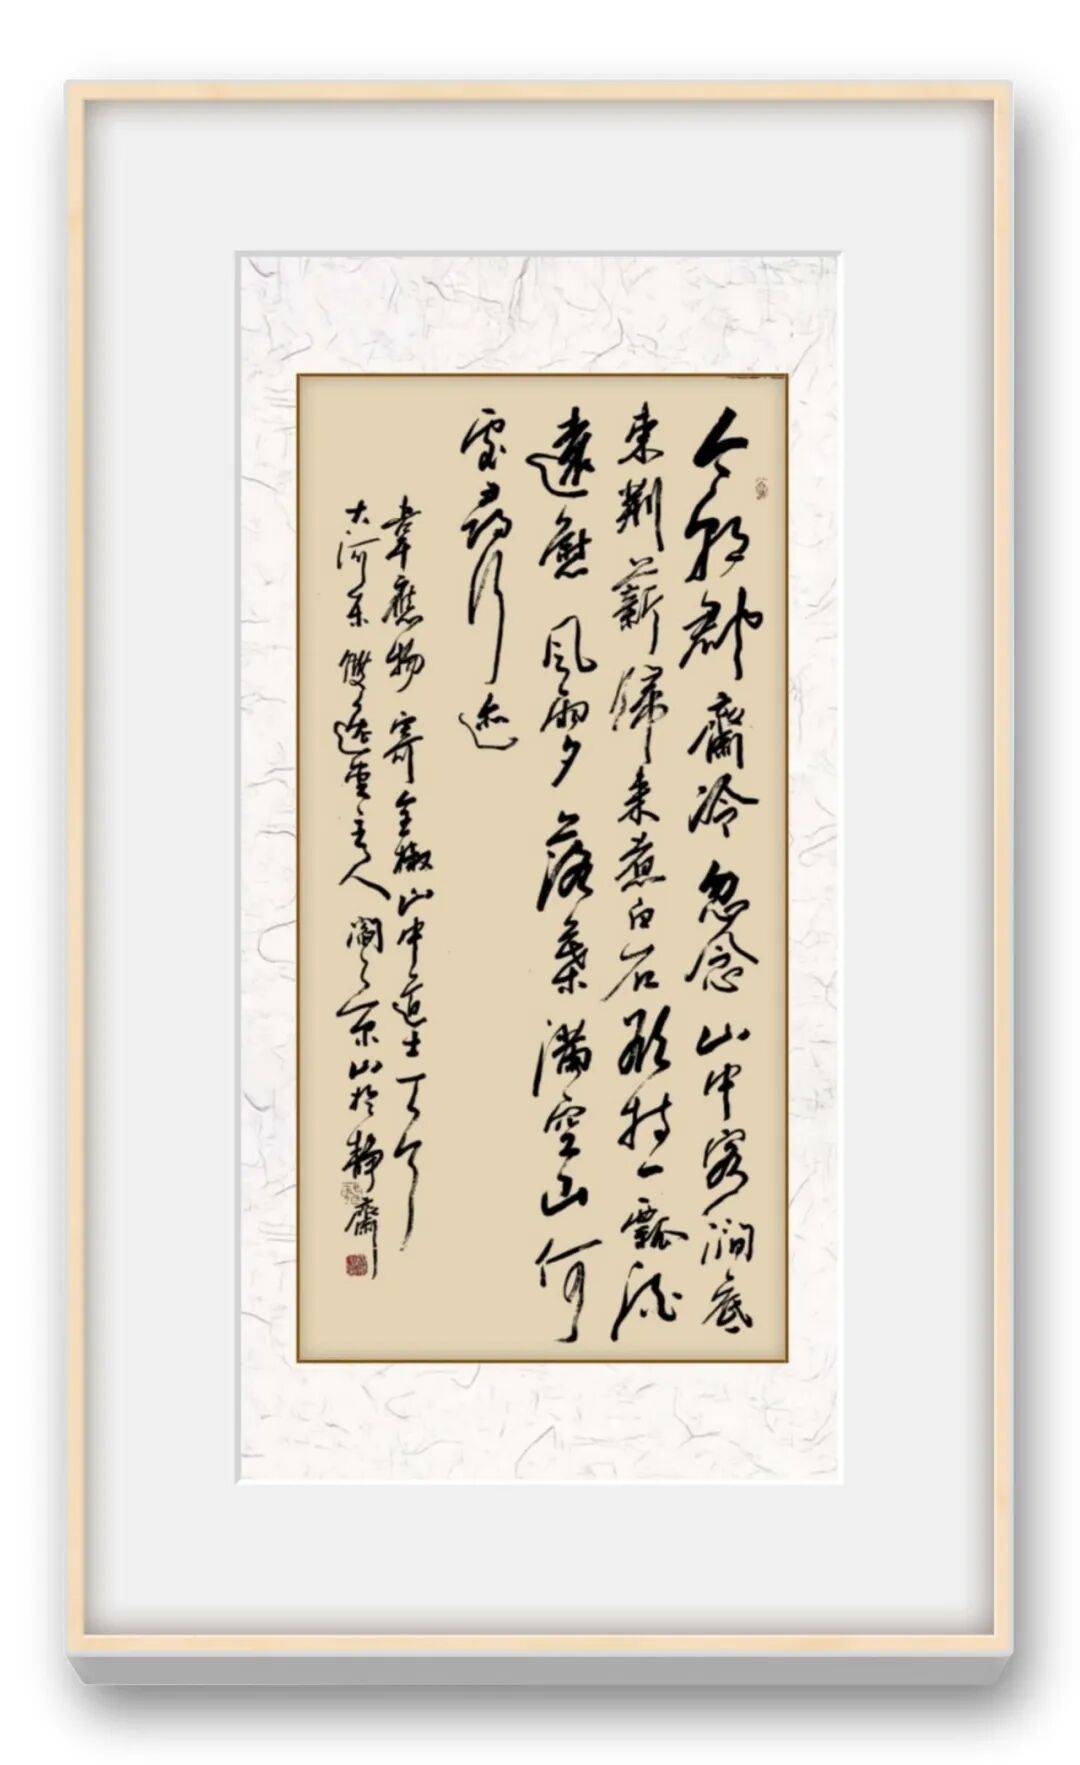 今朝郡齋冷忽念山中客澗底
束荆薪歸来煮白石欲持一瓢酒
遠慰风雨夕落葉滿空山何
處尋行迹
韋應物寄全椒山中道士
大河东雙堂主人閻京山於靜齋